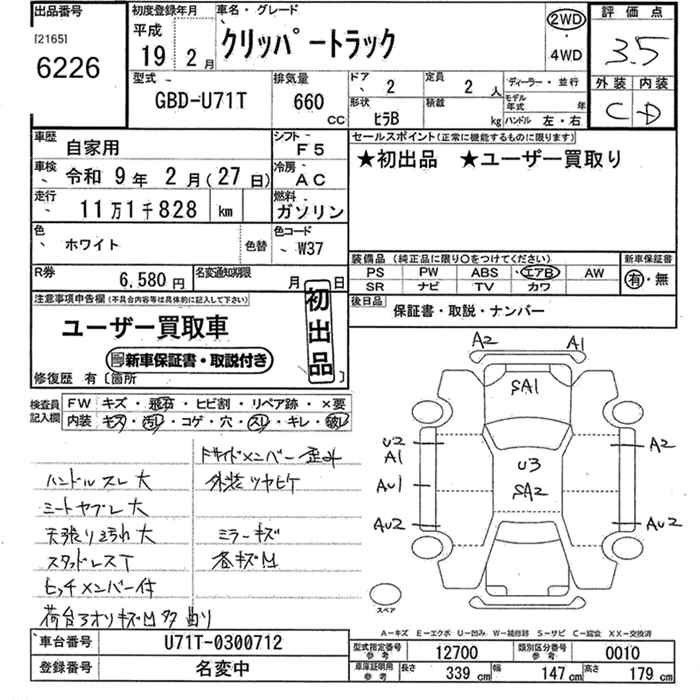 出品番号
[2165]
6226
初度登録年月
平成
19 2月
車名・グレード
クリッパートラック
2WD
4WD
評価点
3.5
外装 内装
C D
型式
GBD-U71T
排気量
660
CC
ドア 2
定員 2人
ディーラー・並行
形状 ヒラB
積載 kg
モデル年式 年
ハンドル 左・右
車歴 自家用
シフト F5
セールスポイント(正常に機能するものに限ります)
★初出品 ★ユーザー買取り
車検 令和 9年 2月(27日)
冷房 AC
走行 11万1千828 km
燃料 ガソリン
色 ホワイト
色替
色コード W37
装備品(純正品に限り○をつけてください)
新車保証書
PS PW ABS エアB AW
SR ナビ TV カワ
有・無
R券 6,580円
名変通知期限 月 日
後日品 保証書・取説・ナンバー
注意事項申告欄(不具合内容等は具体的に記入して下さい)
初出品
ユーザー買取車
新車保証書・取説付き
修復歴 有〔箇所 〕
検査員記入欄
FW キズ・飛石・ヒビ割・リペア跡・×要
内装 キズ・汚れ・コゲ・穴・スレ・キレ・破れ
ハンドルスレ大
シートヤブレ大
天張り汚れ大
スタッドレスT
ヒッチメンバー付
荷台アオリキズM多 曲り
Fサイドメンバー歪み
外装ツヤヒケ
ミラーキズ
各キズM
A2 A1
SA1
U2
A1
A2
U3
SA2
AU1
AU2
AU2
スペア
A-キズ E-エクボ U-凹み W-補修跡 S-サビ C-腐食 XX-交換済
車台番号 U71T-0300712
登録番号 名変中
型式指定番号 参考 12700
類別区分番号 参考 0010
車庫証明用 参考 長さ 339cm 幅 147cm 高さ 179cm